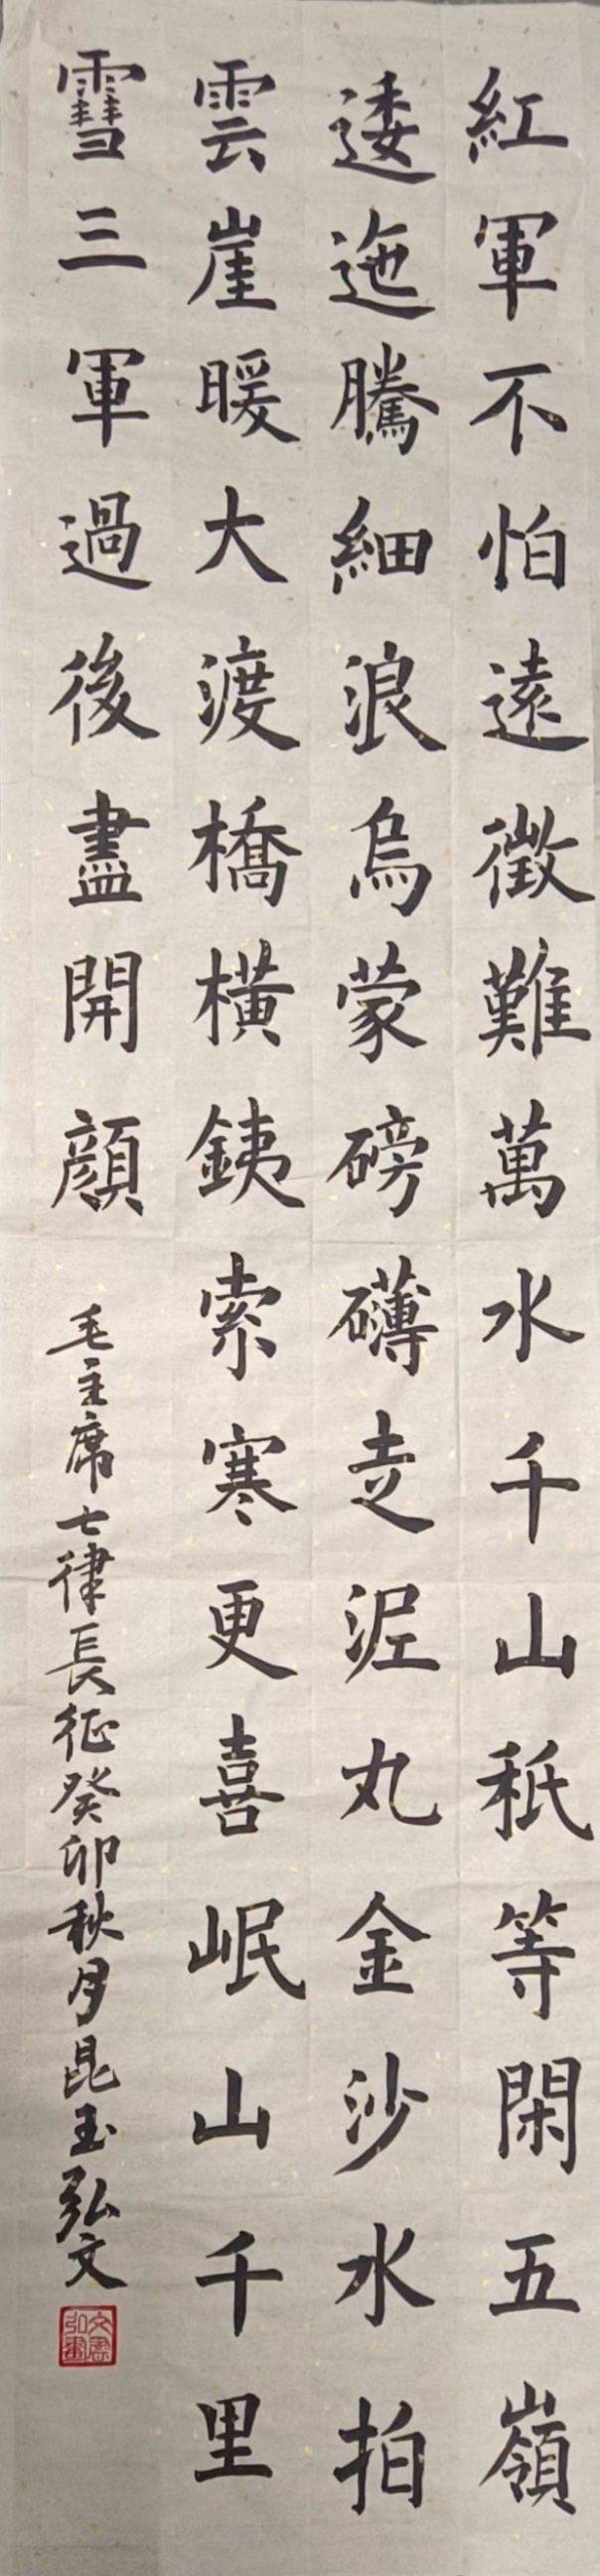 紅軍不怕遠徵難萬水千山秖等閑五嶺
逶迤騰細浪烏蒙磅礴走泥丸金沙水拍
雲崖暖大渡橋橫銕索寒更喜岷山千里
雪三軍過後盡開顏 毛主席七律長征癸卯秋月昆玉弘文